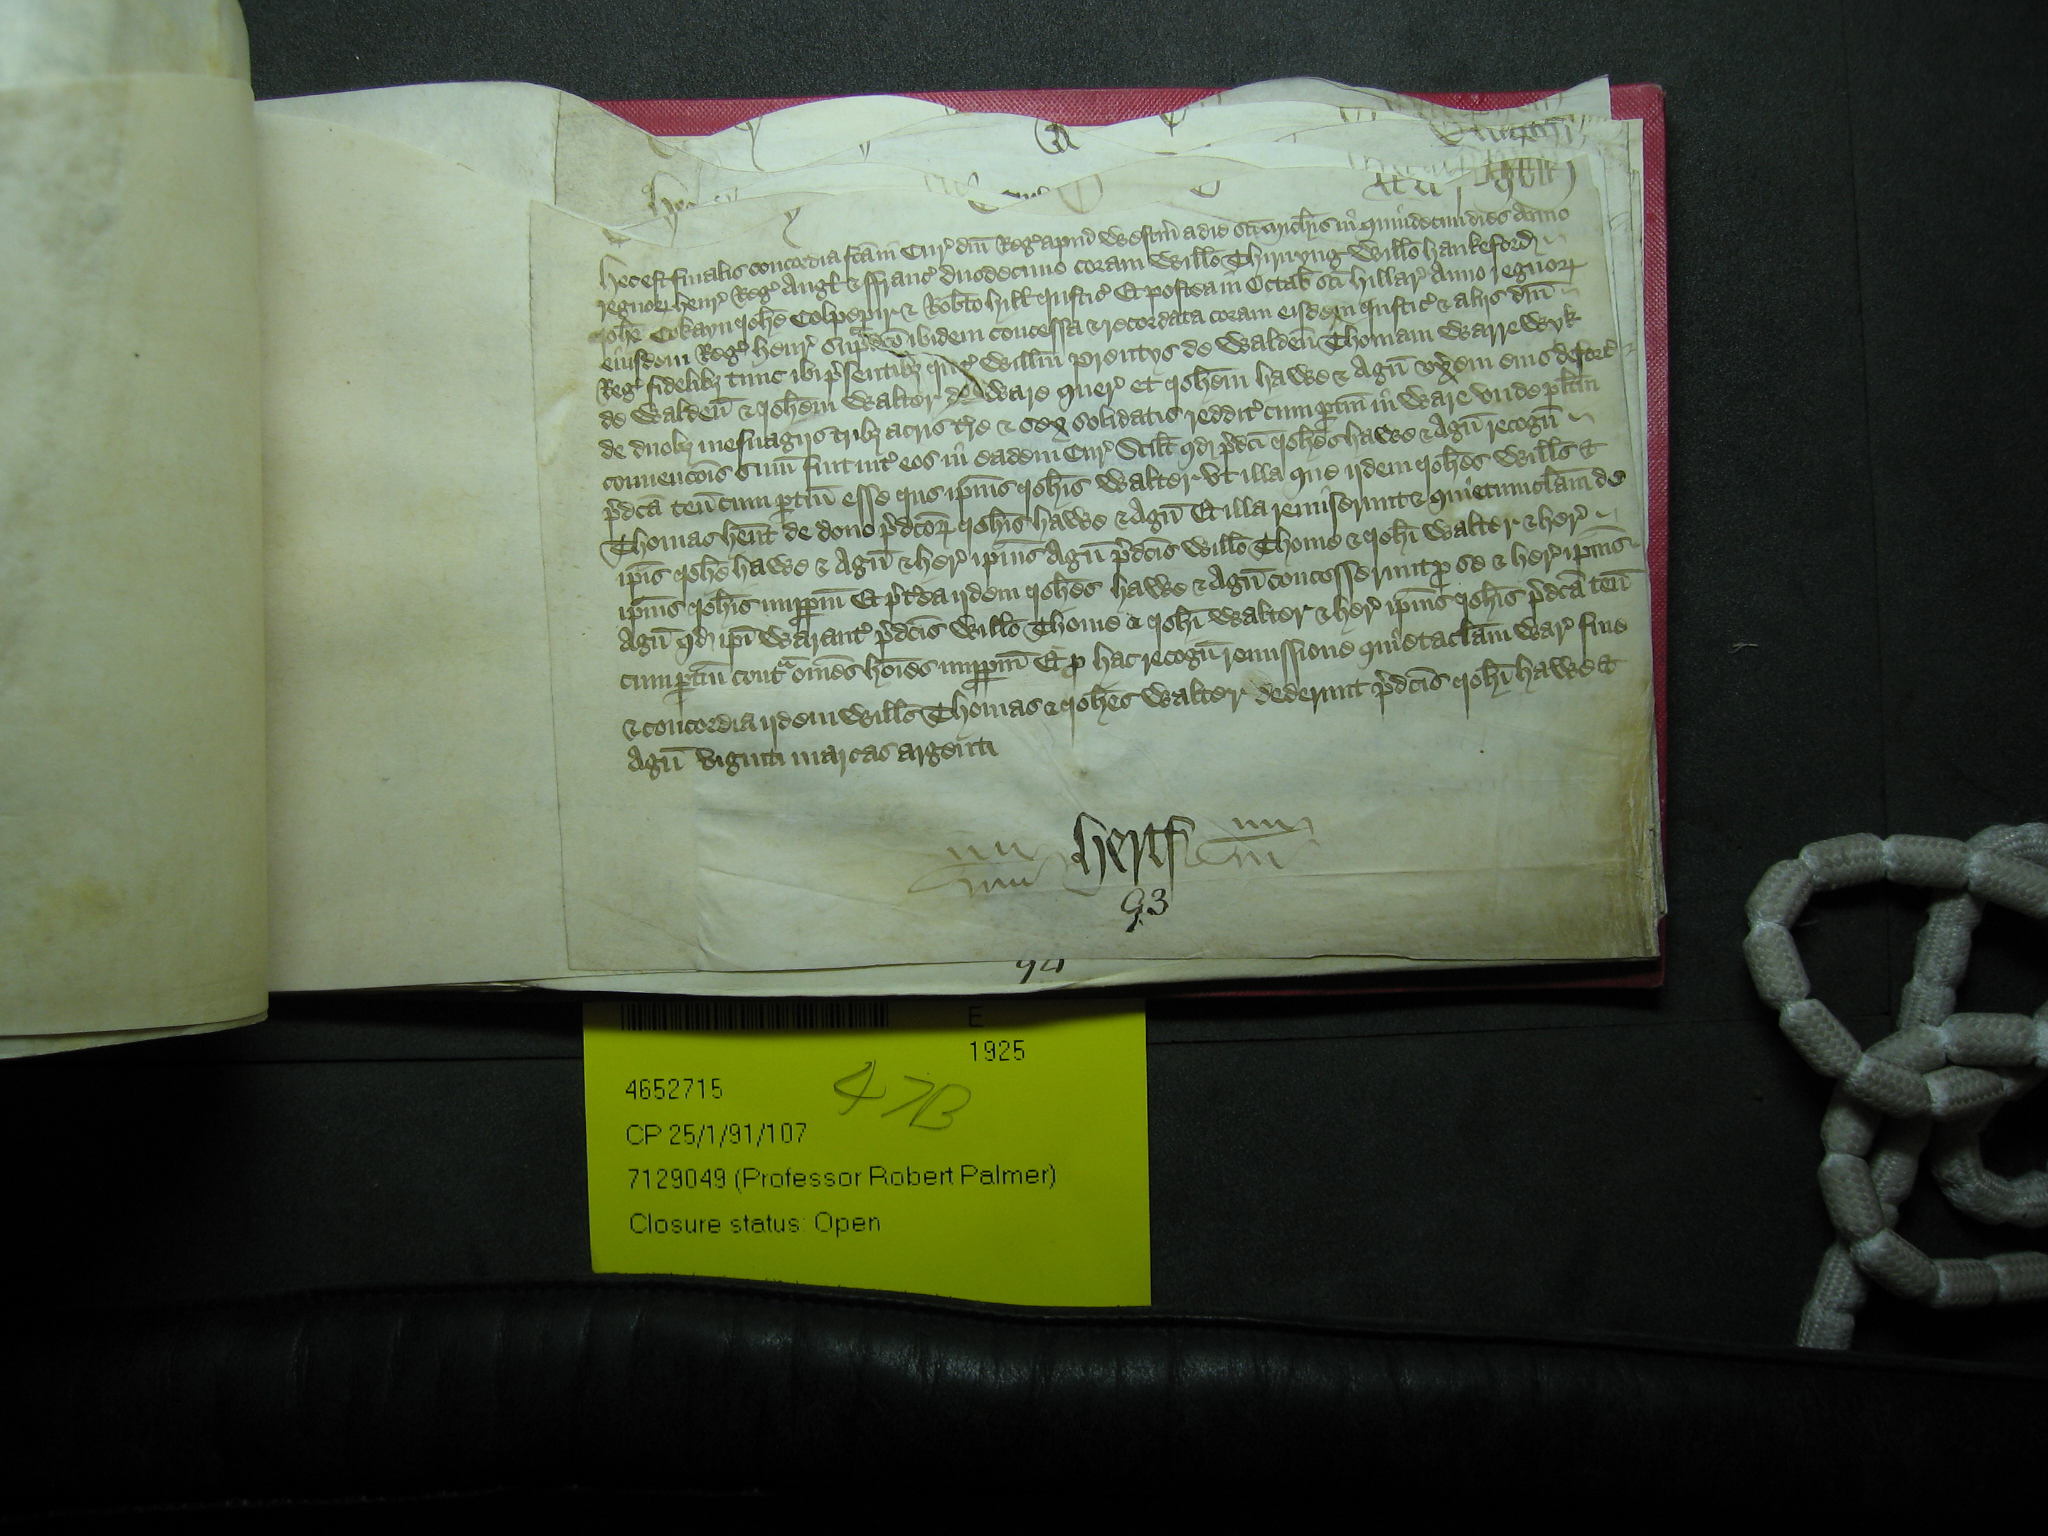 Hec est finalis concordia fcam in Cur' dni Reg' apud Westm' a die sci Michis in quindecim dies Anno
regnor' Henr' Reg' Angl' & Franc' duodecimo coram Willo Thirnyng Willo Hankeford
Johe Cokayn Johe Colpepir & Robto Hill Justic' Et postea in Octab' sci Hillar' Anno regnor'
eiusdem Reg' Henr' supradco ibidem concessa & recordata coram eisdem Justic' & aliis dni
Reg' fidelibz tunc ibi p'sentibz int' Willm Prentys de Walden Thomam Warrewyk
de Walden & Johem Walter de Ware quer' et Johem Hawe & Agn' uxem eius deforc'
de duobz mesuagiis tribz acris tre & sex solidatis reddit' cum ptin in Ware unde plitm
convencois sum fuit int' eos in eadem Cur' Scilt qd p'dci Johes Hawe & Agn' recogn'
p'dca ten' cum ptin esse jus ipius Johis Walter ut illa que iidem Johes Wills et
Thomas hent de dono p'dcor' Johis Hawe & Agn' Et illa remiserunt & quietumclam' de
ipis Johe Hawe & Agn' & her' ipius Agn' p'dcis Willo Thome & Johi Walter & her'
ipius Johis imppm Et p't'ea iidem Johes Hawe & Agn' concesserunt p se & her' ipius
Agn' qd ipi Warant' p'dcis Willo Thome & Johi Walter & her' ipius Johis p'dca ten'
cum ptin cont'a omes hoies imppm Et p hac recogn' remissione quietaclam' War' fine
& concordia iidem Wills Thomas & Johes Walter dederunt p'dcis Johi Hawe et
Agn' viginti marcas argenti
Hertf
93
94
E
1925
4652715
47B
CP 25/1/91/107
7129049 (Professor Robert Palmer)
Closure status: Open